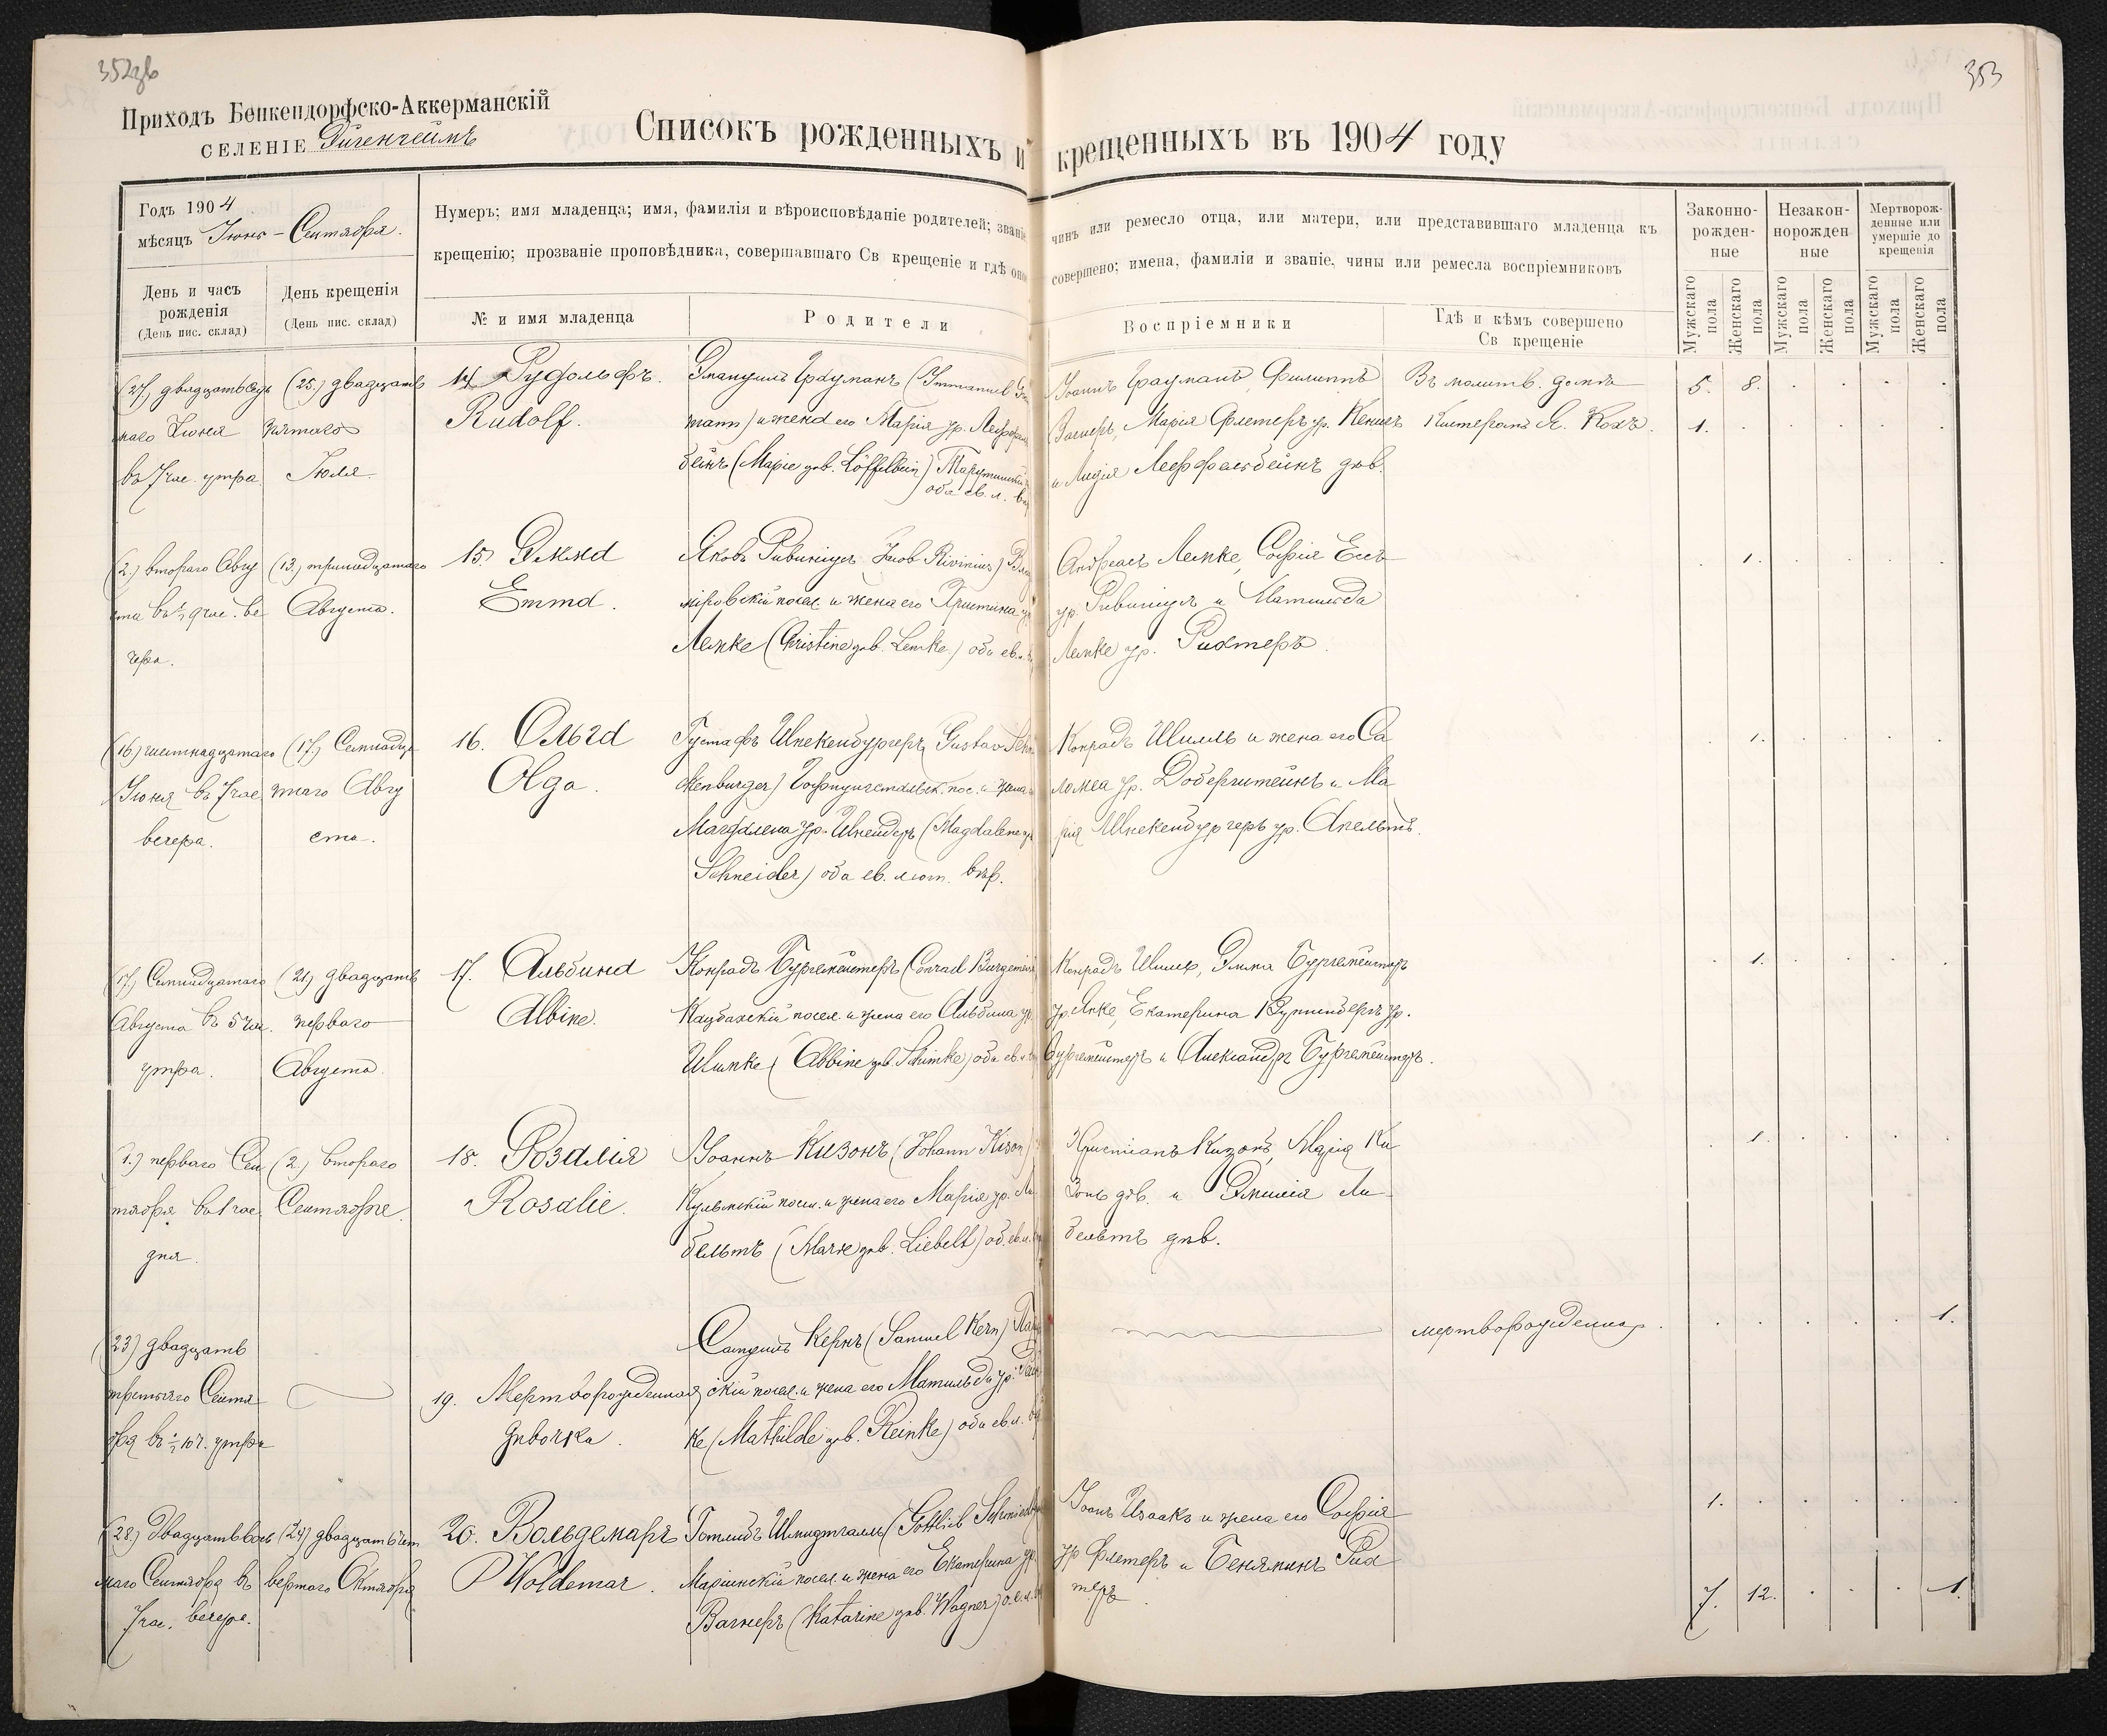 352
353
Приходъ Бенкендорфско-Аккерманскій
СЕЛЕНІЕ
Списокъ рожденныхъ и крещенныхъ въ 1904 году
Годъ 1904
мѣсяцъ Іюнь - Сентября.
Нумеръ; имя младенца; имя, фамилія и вѣроисповѣданіе родителей; званіе чинъ или ремесло отца, или матери, или представившаго младенца къ
крещенію; прозваніе проповѣдника, совершавшаго Св крещеніе и гдѣ оное совершено; имена, фамиліи и званіе, чины или ремесла воспріемниковъ
День и часъ
рожденія
(День пис. склад)
День крещенія
(День пис. склад)
№ и имя младенца
Родители
Воспріемники
Гдѣ и кѣмъ совершено
Св крещеніе
Законно-
рожден-
ные
Незакон-
норожден
ные
Мертворож-
денные или
умершіе до
крещенія
Мужскаго
пола
Женскаго
пола
Мужскаго
пола
Женскаго
пола
Мужскаго
пола
Женскаго
пола
(27) двадцать седь
маго Іюня
въ 7 час. утра
(25.) двадцать
пятаго
Іюля.
14. Рудольфъ.
Rudolf.
Эмануилъ Грауманъ (Immanuel
mann) и жена его Марія ур. Леффель
бейнъ (Marie ув. Löffelbein)
оба ев. л.
Іоаннъ Грауманъ, Филиппъ
Вагнеръ, Марія Флетеръ ур.
и Лидія Леффельбейнъ дѣв.
Въ молитв. домѣ
Кистеромъ Я. Кохъ.
5. 8.
1.
(2.) втораго Авгу
ста въ ½ 9 час. ве
чера.
(13.) тринадцатаго
Августа.
15. Эмма
Emma.
Яковъ Ривиніусъ Jacob Rivinius)
міровскій посел. и жена его Христина
Лемке (Christine ув. Lemke) оба ев.
Андреасъ Лемке, Софія
ур. Ривиніусъ и Матильда
Лемке ур. Рихтеръ.
1.
(16) шестнадцатаго
Іюня въ 7 час
вечера.
(17) Семнадца
таго Авгу
ста.
16. Ольга
Olga.
Густафъ Шнекенбургеръ (Gustav Schne
ckenburger) посел. и жена
Магдалена ур. Шнейдеръ (Magdalene
Schneider) оба ев. лют. вѣр.
Конрадъ Шилль и жена его Са
ломеа ур. Доберштейнъ и Ма
рія Шнекенбургеръ ур.
1.
(17) Семнадцатаго
Августа въ 5 час.
утра.
(21) двадцать
перваго
Августа.
17. Альбина
Albine.
Конрадъ Бургемейстеръ (Conrad Burgemeis
Кацбахскій посел. и жена его Альбина ур.
Шимке (Albine ув. Schimke) оба ев.
Конрадъ Шилль, Эмма Бургемейстеръ
ур. Янке, Екатерина ур.
Бургемейстеръ и Александръ Бургемейстеръ.
1.
(1.) перваго Сен
тября въ 1 час
дня.
(2.) втораго
Сентября.
18. Розалія
Rosalie.
Іоаннъ Кизонъ (Johann Kison)
Кульмскій посел. и жена его Марія ур. Ли
бельтъ (Marie ув. Liebelt) об. ев. л.
Христіанъ Кизонъ, Марія Ки
зонъ дѣв. и Эмилія Ли
бельтъ дѣв.
1.
(23) двадцать
третьяго Сентя
бря въ ½ 10 ч. утра
19. Мертворожденная
дѣвочка.
Самуилъ Кернъ (Samuel Kern)
скій посел. и жена его Матильда ур. Рейн
ке (Mathilde ув. Reinke) оба ев. л.
мертворожденная.
1.
(28) Двадцать вось
маго Сентября въ
7 час. вечера.
(24) двадцать чет
вертаго Октября
20. Вольдемаръ
Woldemar.
Готлибъ (Gottlieb
Маріинскій посел. и жена его Екатерина ур.
Вагнеръ (Katarine ув. Wagner)
Іоаннъ Изаакъ и жена его Софія
ур Флетеръ и Беняминъ Рих
теръ.
1.
7. 12. 1.